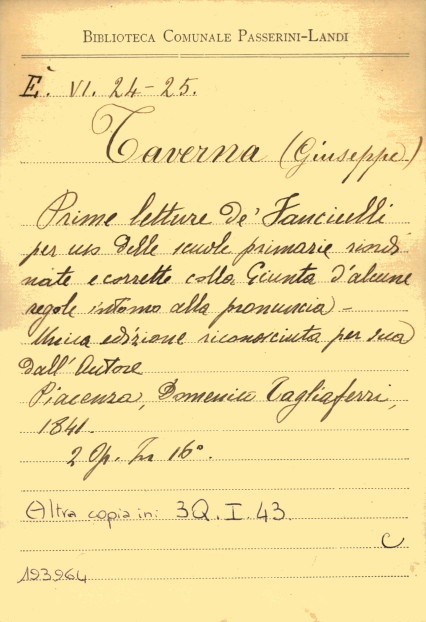 BIBLIOTECA COMUNALE PASSERINI-LANDI
È. VI. 24-25.
Taverna (Giuseppe)
Prime letture de' Fanciulli
per uso delle scuole primarie riordi
nate e corrette colla Giunta d'alcune
regole intorno alla pronuncia -
Unica edizione riconosciuta per sua
dall'Autore
Piacenza, Domenico Tagliaferri,
1841.
2 Op. In 16°.
Altra copia in: 3Q.I.43.
C
193964